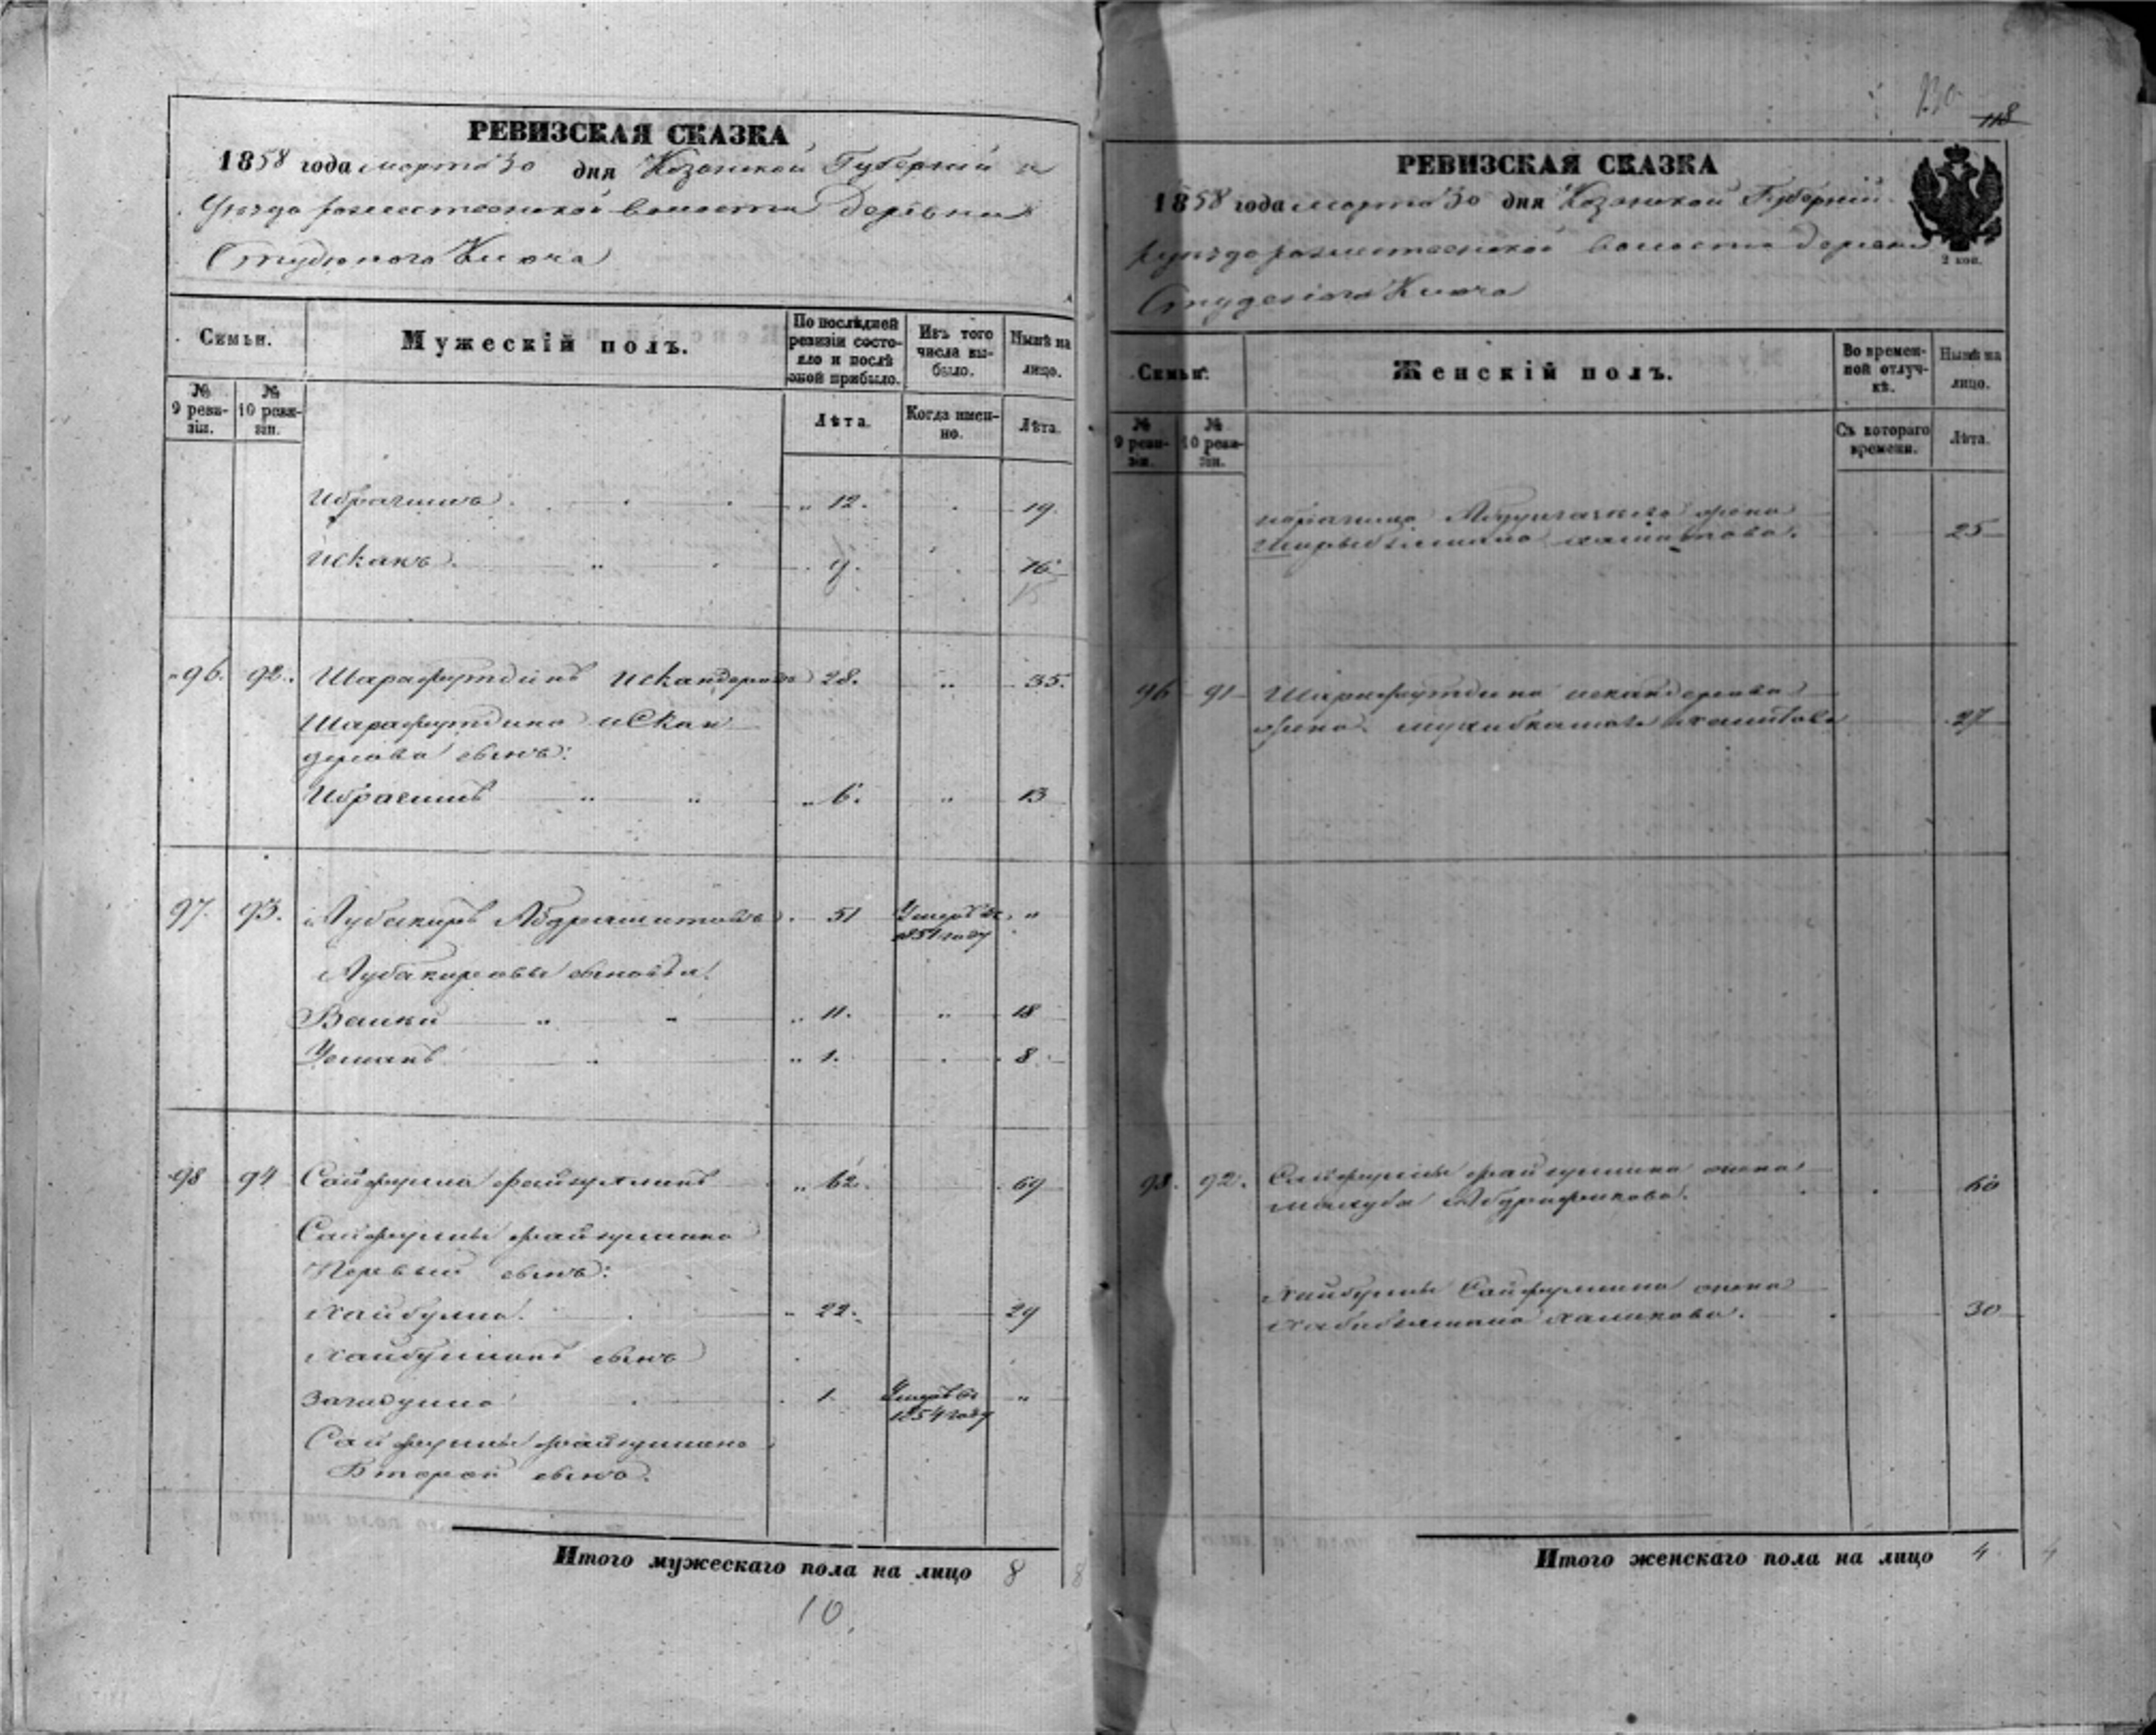 РЕВИЗСКАЯ СКАЗКА
1858 года марта 30 дня Казанской Губерніи и
Уезда волости деревни
Студеного Ключа
Семьи.
Мужескій полъ.
По послѣдней ревизіи состояло и послѣ оной прибыло.
Изъ того числа выбыло.
Нынѣ на лицо.
№ 9 ревизіи.
№ 10 ревизіи.
Лѣта.
Когда именно.
Лѣта.
Ибрагимъ " 12. 19.
Исканъ 9. 16
96. 92. Шарафутдинъ Искандеровъ 28. " 35.
Шарафутдина Искан
дерова сынъ:
Ибрагимъ " " " 6. " 13
97. 93. Аубакиръ Абдрашитовъ 51 Умеръ въ 1851 году "
Аубакировы сыновья:
Валики " " " 11. " 18
Усманъ " " 1. 8.
98 94 Сайфулла Файзуллинъ " 62. 69
Сайфуллы Файзуллина
Первый сынъ:
Хайбулла " 22. 29
Хайбуллинъ сынъ
Загидулла 1. Умеръ въ 1854 году "
Сайфуллы Файзуллина
Второй сынъ.
Итого мужескаго пола на лицо 8 8
10.
130
118
РЕВИЗСКАЯ СКАЗКА
1858 года марта 30 дня Казанской Губерніи
волости деревни
2 коп.
Студеного Ключа
Семьи.
Женскій полъ.
Во временной отлучкѣ.
Нынѣ на лицо.
№ 9 ревизіи.
№ 10 ревизіи.
Съ котораго времени.
Лѣта.
жена
25
96 91 Шарафутдина Искандерова
жена 27
98. 92. Сайфуллы Файзуллина жена
60
Хайбуллы Сайфуллина жена
30
Итого женскаго пола на лицо 4. 4